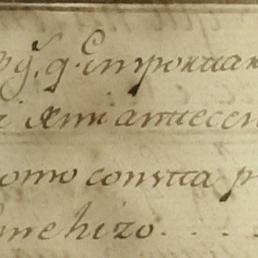 q. Emportan
i de mi antecen
omo consta p
me hizo....